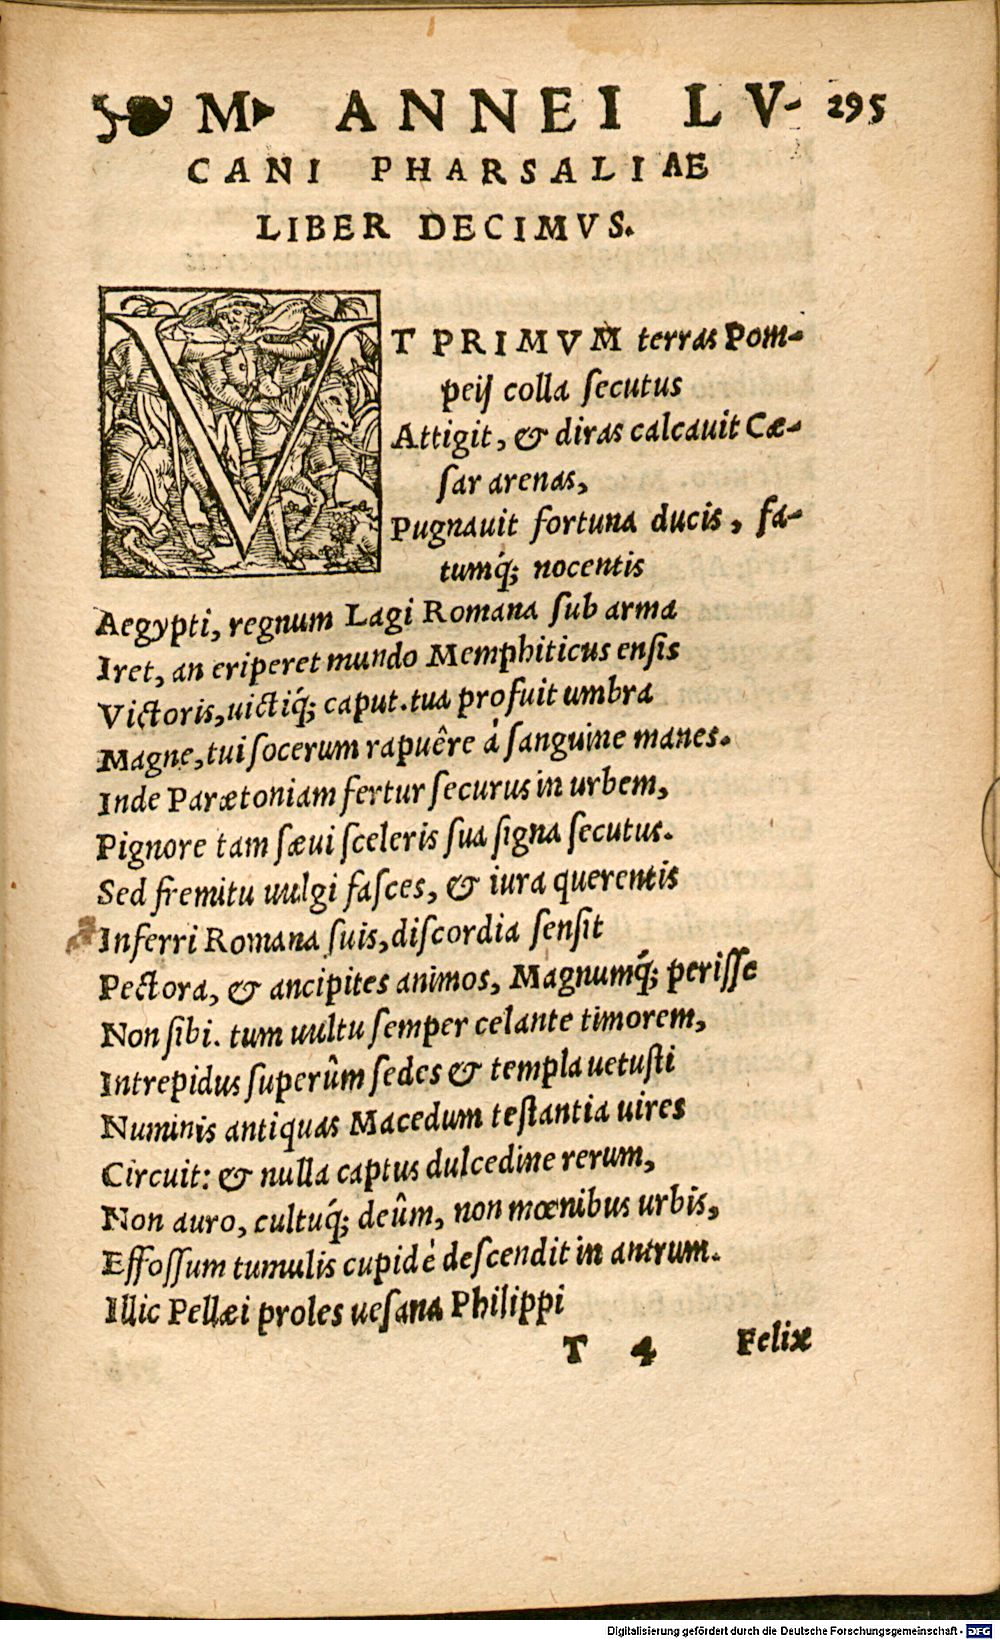 M ANNEI LV- 295
CANI PHARSALIAE
LIBER DECIMVS.
VT PRIMVM terras Pom-
peij colla ſecutus
Attigit, & diras calcauit Cæ-
ſar arenas,
Pugnauit fortuna ducis, fa-
tumq́; nocentis
Aegypti, regnum Lagi Romana ſub arma
Iret, an eriperet mundo Memphiticus enſis
Victoris, uictiq́; caput. tua profuit umbra
Magne, tui ſocerum rapuêre à ſanguine manes.
Inde Parætoniam fertur ſecurus in urbem,
Pignore tam ſæui ſceleris ſua ſigna ſecutus.
Sed fremitu uulgi faſces, & iura querentis
Inferri Romana ſuis, diſcordia ſenſit
Pectora, & ancipites animos, Magnumq́; periſſe
Non ſibi. tum uultu ſemper celante timorem,
Intrepidus ſuperûm ſedes & templa uetuſti
Numinis antiquas Macedum teſtantia uires
Circuit: & nulla captus dulcedine rerum,
Non auro, cultuq́; deûm, non mœnibus urbis,
Effoſſum tumulis cupidè deſcendit in antrum.
Illic Pellæi proles ueſana Philippi
T 4 Felix
Digitalisierung gefördert durch die Deutsche Forschungsgemeinschaft - DFG